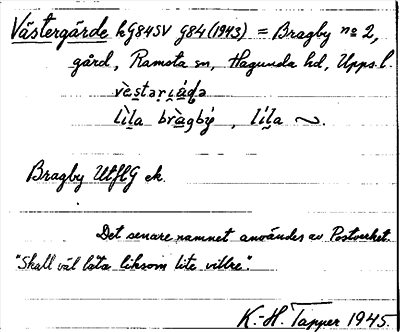 Västergärde kG84SV G84 (1943) = Bragby no 2,
gård, Ramsta sn, Hagunda hd, Upps. l.
lìla bràgbý, líla ~.
Bragby UtflG ek.
Det senare namnet användes av Postverket.
"Skall väl låta liksom lite villre".
K.-H. Tapper 1945.